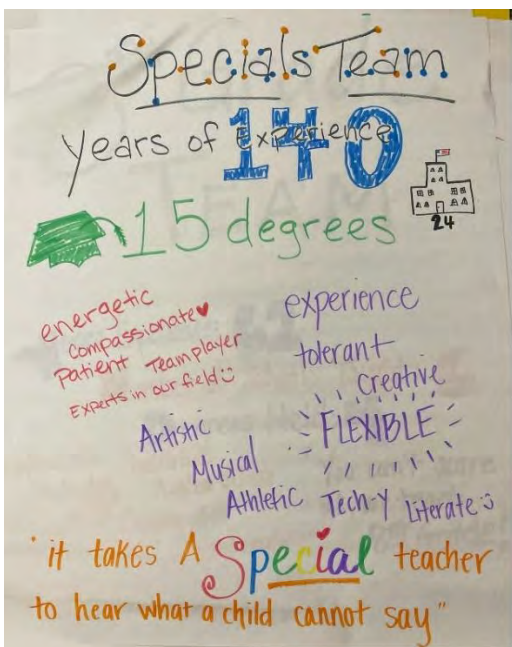 Specials Team
Years of Experience
140
24
15 degrees
energetic
Compassionate♥
Patient Team player
Experts in our field☺
experience
tolerant
Creative
FLEXIBLE
Artistic
Musical
Athletic Tech-y Literate☺
"it takes A Special teacher
to hear what a child cannot say"